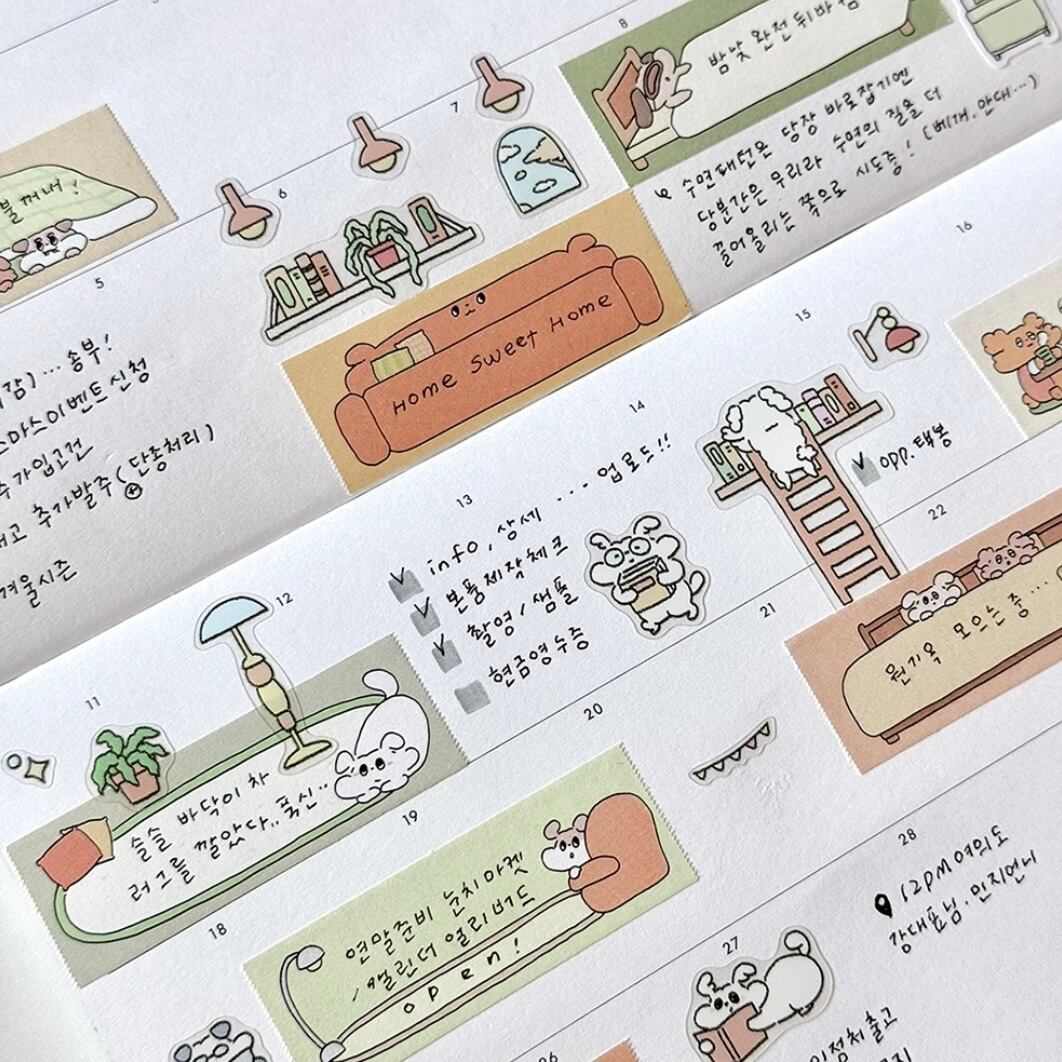 8
밤낮 완전 뒤바뀜
수면패턴은 당장 바로잡기엔
당분간은 무리라 수면의 질을 더
끌어올리는 쪽으로 시도중! (베개, 안대...)
7
6
불꺼내!
5
... 송부!
스마스이벤트 신청
추가입고건
추가발주 (단종처리)
겨울시즌
HOME SWEET HOME
16
15
opp. 택봉
14
13
info, 상세 ... 업로드!!
본품제작체크
촬영/샘플
현금영수증
12
11
슬슬 바닥이 차
러그를 깔았다.. 푹신..
22
원기옥 모으는 중...
21
20
19
연말준비 눈치마켓
캘린더 얼리버드
open!
18
28
12PM 여의도
강대표님, 민지언니
27
26